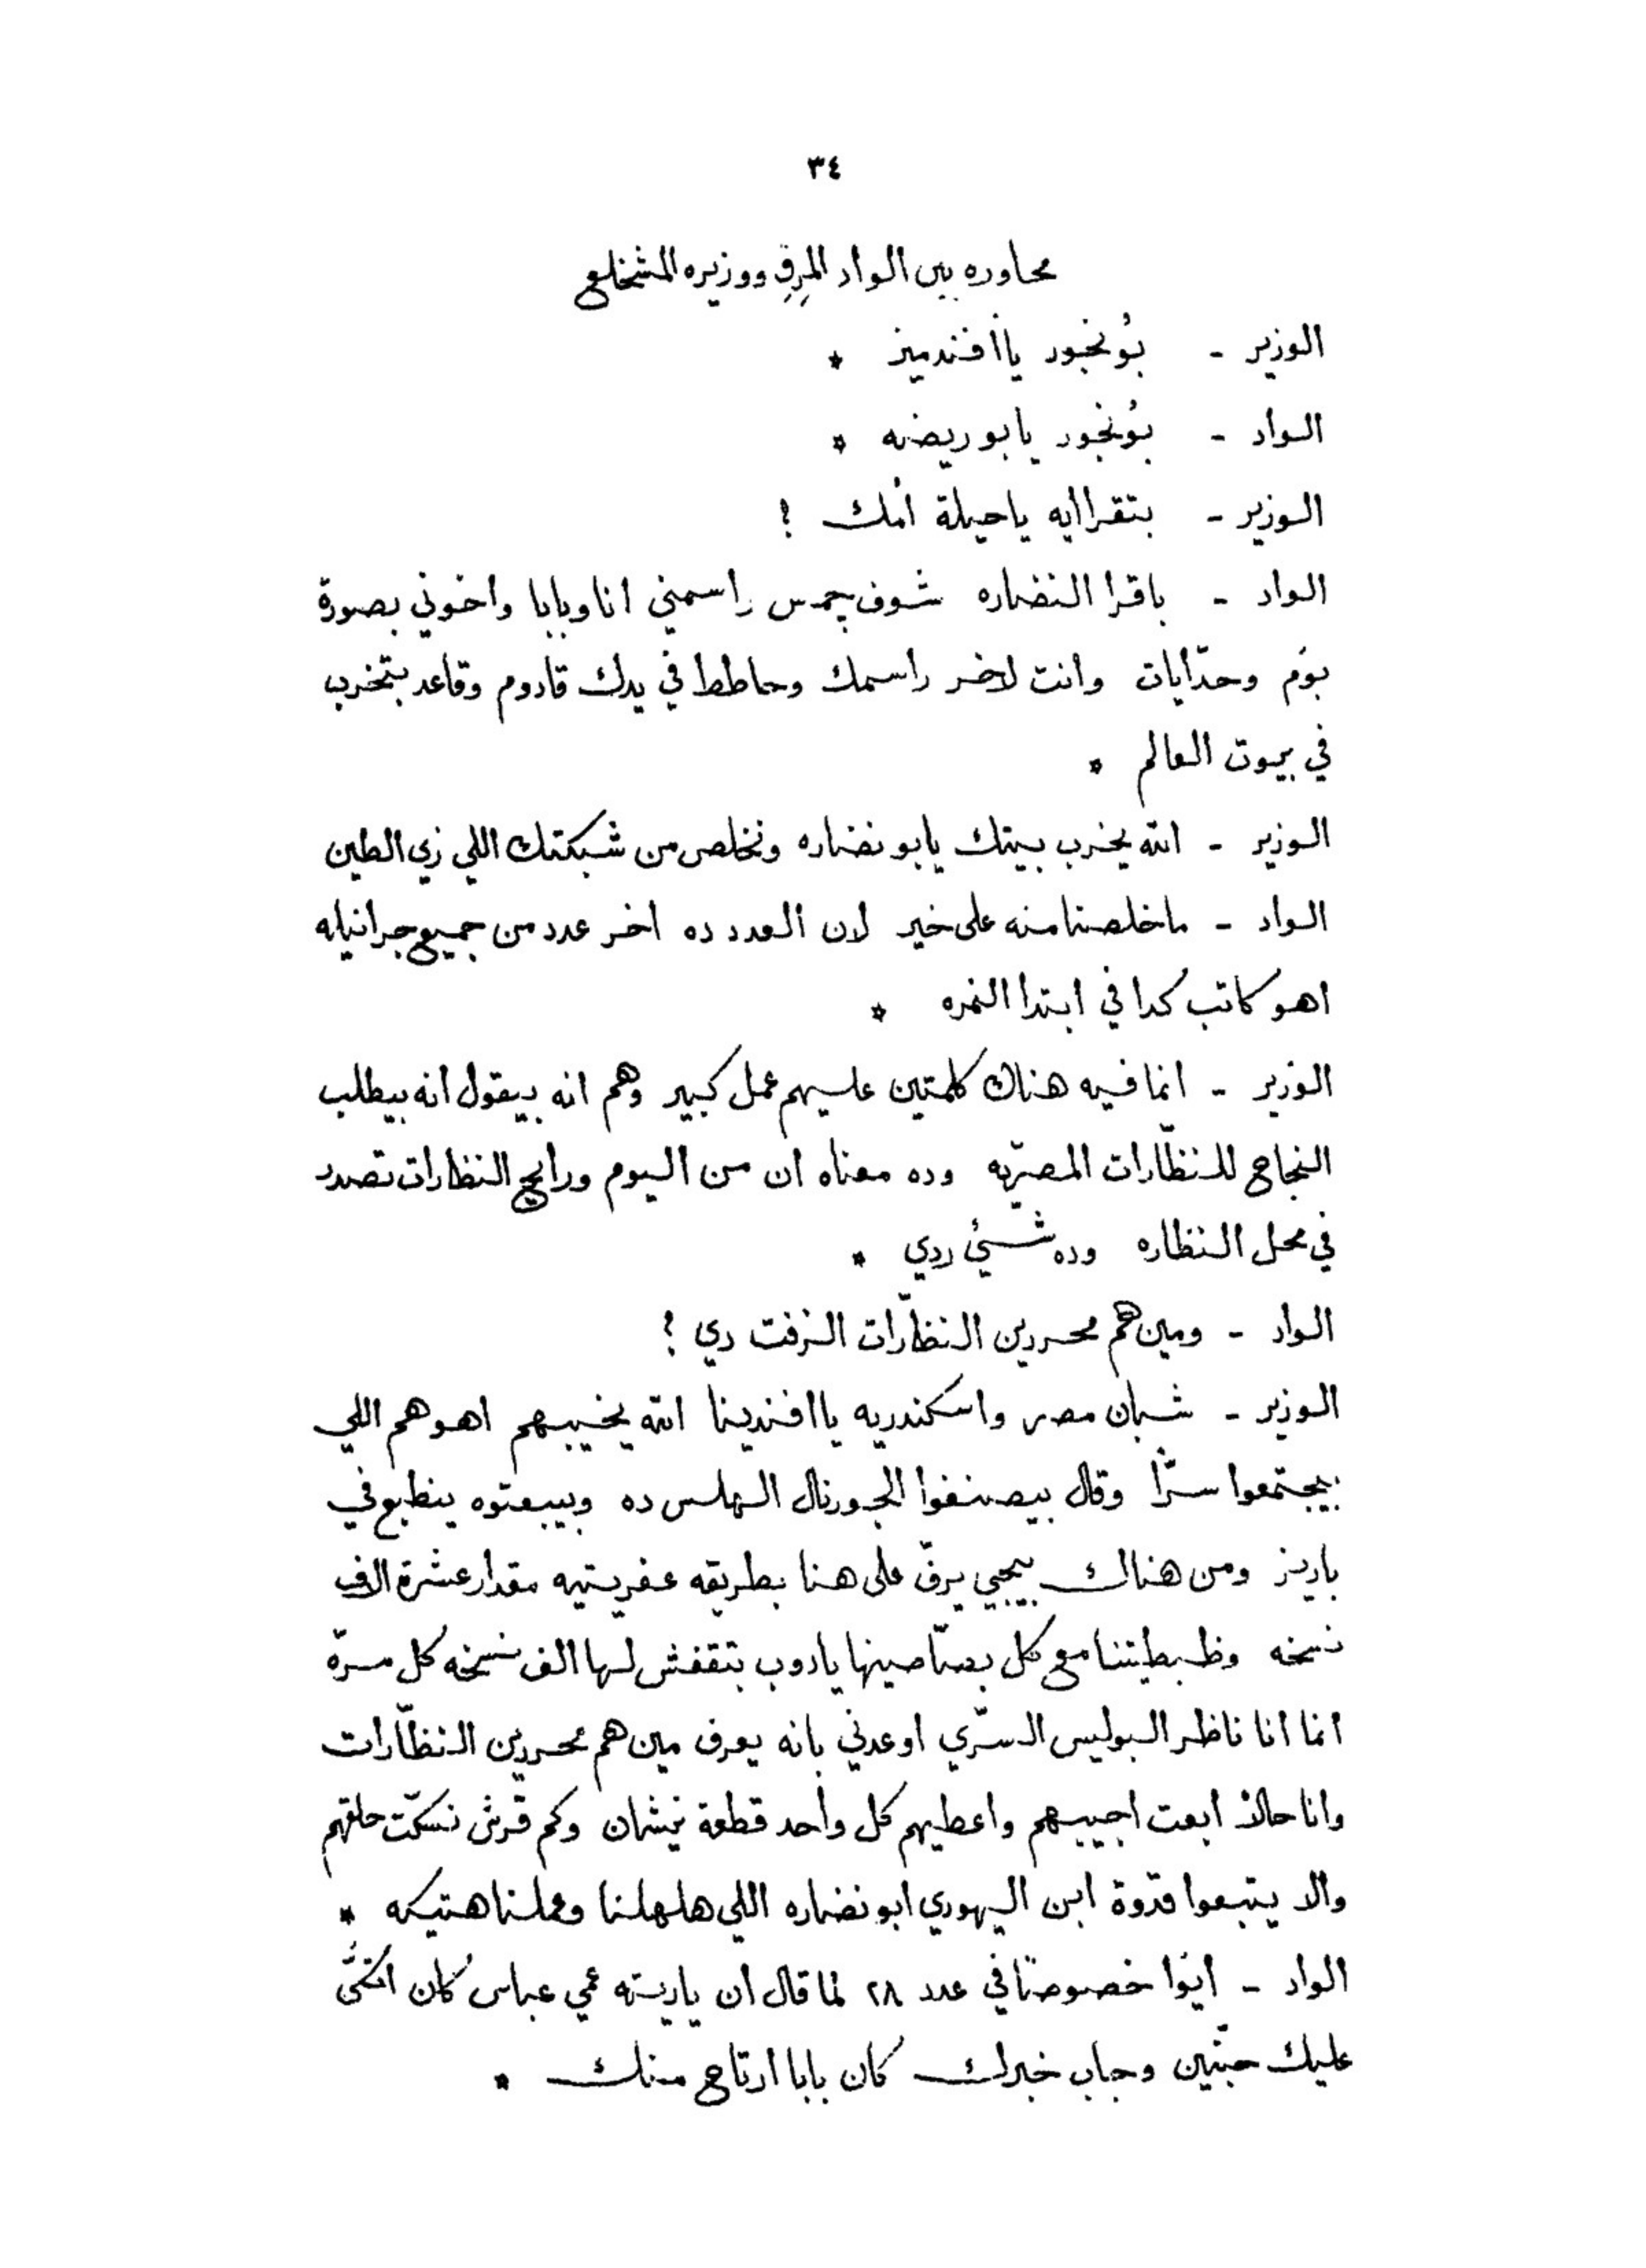 ٣٤
محاوره بين الواد المرق ووزيره المشخلع
الوزير - بُونجور ياأفندميز *
الواد - بُونجور يابو ريضه *
الوزير - بتقراايه ياحيلة أمك ؟
الواد - باقرا النضاره شوف جمس راسمني انا وبابا واخوتي بصورة
بوَم وحدّايات وانت لاخر راسمك وحاطط في يدك قادوم وقاعد بتخرب
في بيوت العالم *
الوزير - الله يخرب بيتك يابو نضاره ونخلص من شبكتك اللي زي الطين
الواد - ماخلصنا منه على خير لان العدد ده اخر عدد من جميع جرانيله
اهو كاتب كدا في ابتدا النمره *
الوزير - انما فيه هناك كلمتين عليهم عمل كبير وهم انه بيقول انه بيطلب
النجاح للنظّارات المصريّه وده معناه ان من اليوم ورايح النظارات تصدر
في محل النظاره وده شيئ ردي *
الواد - ومين هم محررين النظّارات الزفت دي ؟
الوزير - شبان مصر واسكندريه ياافندينا الله يخيبهم اهو هم اللي
بيجتمعوا سرّاً وقال بيصنفوا الجورنال الهلس ده ويبعتوه ينطبع في
باريز ومن هناك بيجيي يرقّ على هنا بطريقه عفريتيه مقدار عشرة الاف
نسخه وظبطيتنا مع كل بصّاصينها يادوب بتقفش لها الف نسخه كل مرّه
انما انا ناظر البوليس السرّي اوعدني بانه يعرف مين هم محررين النظّارات
وانا حالاً ابعت اجيبهم واعطيهم كل واحد قطعة نيشان وكم قرش نسكّت حلقهم
والا يتبعوا قدوة ابن اليهودي ابو نضاره اللي هلهلنا وعملنا هتيكه *
الواد - ايوا خصوصاً في عدد ٢٨ لما قال ان ياريته عمي عباس كان اتكّى
عليك حبّتين وجاب خبرك كان بابا ارتاح منك *